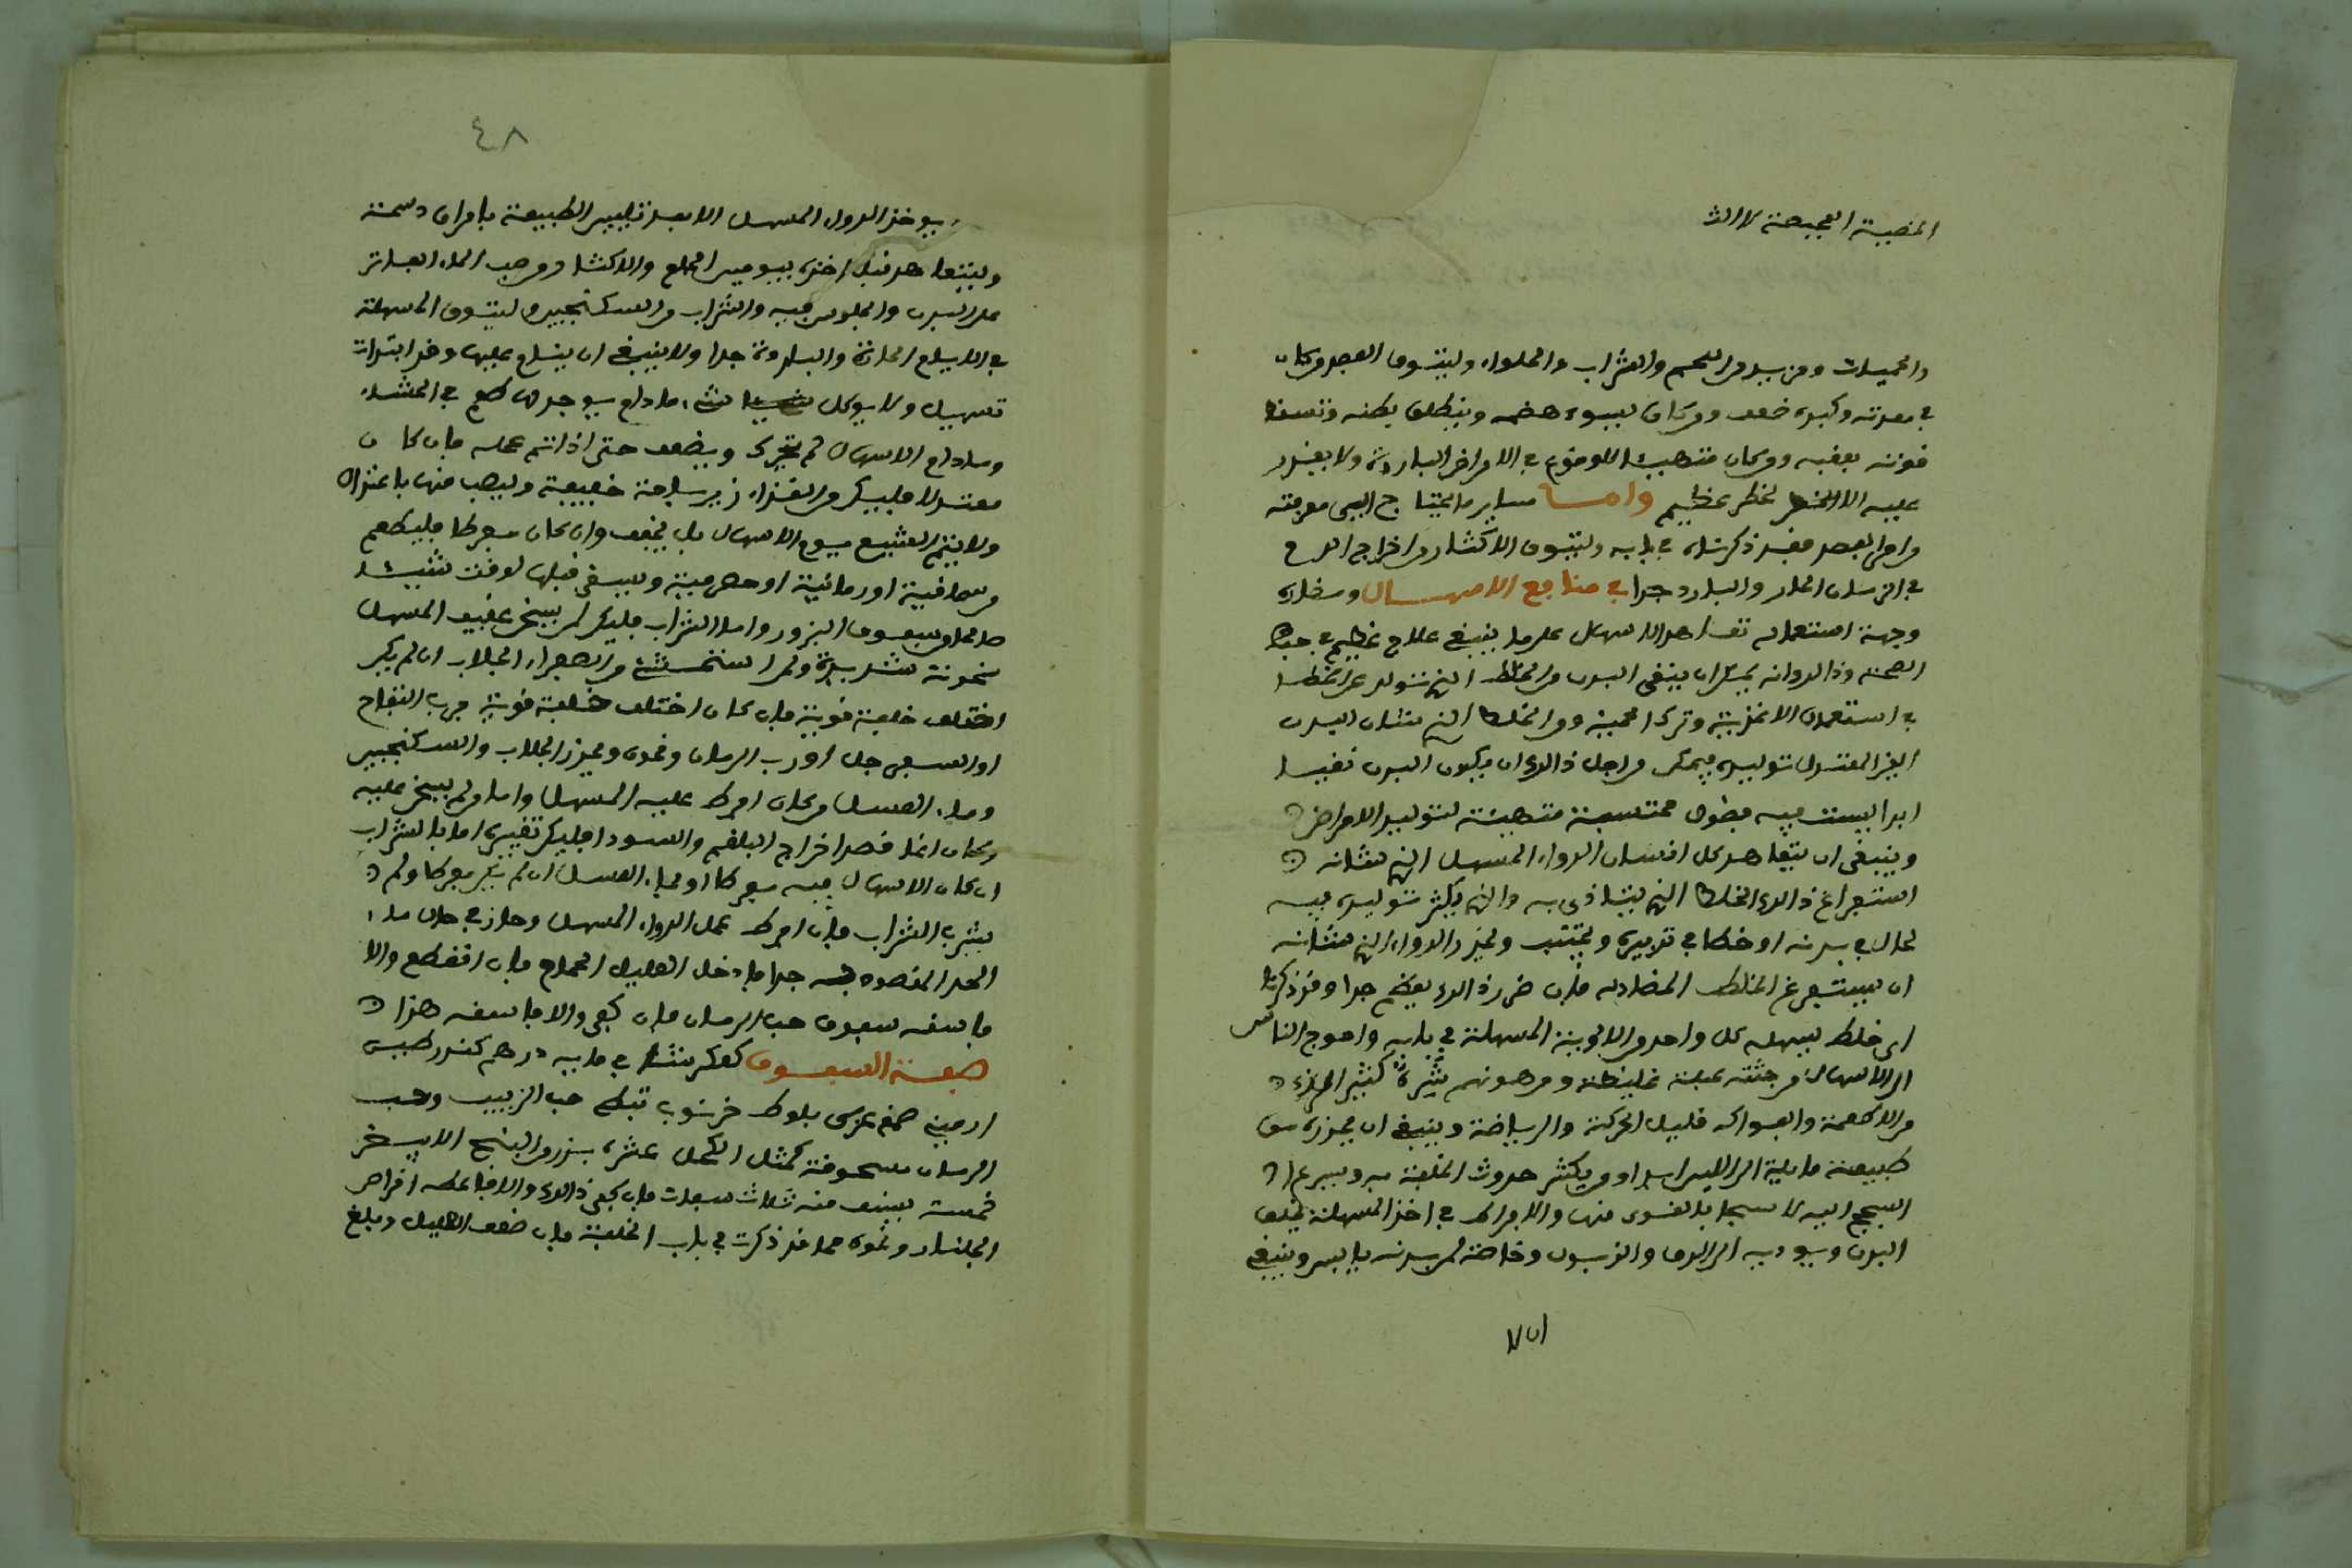 المصببة العجيبة لا الث
والحميات ومن يريد من اللحم والشراب والحلواء وليتوق الفصد من كان
في معدته وكبده ضعف ومن كان يسوء هضمه وينطلق بطنه وتسقط
قوته بعقبه ومن كان متهيئا للوقوع في الامراض الباردة ولا يفصد
عليه الا لخطر عظيم واما ساير ما يحتاج الى معرفته
من امر الفصد فقد ذكرناه في بابه وليتوق الاكثار من اخراج الدم
في الزمان الحار والبارد جدا في منافع الاسهال ومضاره
وجهة استعماله تعاهد الاسهال على ما ينبغي علاج عظيم في حفظ
الصحة وذالك انه يمكن ان ينقى البدن من الخلط الذي تتولد عن الخطا
في استعمال الاغذية وترك الحمية ومن الخلط الذي من شان البدن
الغير المعتدل توليده فيمكن من اجل ذالك ان يكون البدن نقيا
ابدا ليست فيه فضول محتبسة متهيئة لتوليد الامراض
وينبغي ان يتعاهد كل انسان الدواء المسهل الذي من شانه
استفراغ ذالك الخلط الذي يتاذى به والذي يكثر توليده فيه
لحال في بدنه او خطا في تدبيره ويجتنب ويحذر الدواء الذي من شانه
ان يستفرغ الخلط المضاد له فان ضرر ذالك يعظم جدا وقد ذكرنا
اي خلط يسهله كل واحد من الادوية المسهلة في بابه واحوج الناس
الى الاسهال من جثته عبلة غليظة ومن هو نهم شره كثير المزء
من الاطعمة والفواكه قليل الحركة والرياضة وينبغي ان يحذره من
طبيعته مايلة الى اللين ابدا ومن يكثر حدوث الخلفة به ويسرع
السحج اليه لا سيما بالقوى منها والافراط في اخذ المسهلة يخلق
البدن ويوديه الى الدق والذبول وخاصة لمن بدنه يابس وينبغي
ان لا
٤٨
يوخذ الدواء المسهل الا بعد تليين الطبيعة بامراق دسمة
وليتعاهد قبل اخذه بيومين الحمام والاكثار من صب الماء الفاتر
على البدن والجلوس فيه والشراب من السكنجبين وليتوق المسهلة
في الايام الحارة والباردة جدا ولا ينبغي ان ينام عليها وقد ابتدات
تسهيل ولا يوكل شيا شيء ما دام يوجد لها طعم في الجشاء
وما دام الاسهال لم يتحرك ويضعف حتى اذا تم عمله فان كان
معتدلا فليكن الغذاء زيرباجة خفيفة وليصب منها باعتدال
ولا يتم الشبع يوم الاسهال بل يخفف وان كان مفرطا فليطعم
سماقية او رمانية او حصرمية ويسقى قبلها لوقت شيئا
صالحا من سفوف البزور واما الشراب فليكن لمن يسخن عقيب المسهل
سخونة شديدة ولمن استفرغت من الصفراء الجلاب ان لم يكن
اختلف خلفة قوية فان كان اختلف خلفة قوية فرب التفاح
او السفرجل او رب الرمان ونحوه ويحذر الجلاب والسكنجبين
وماء العسل من كان افرط عليه المسهل واما من لم يسخن عليه
وكان انما قصد اخراج البلغم والسودا فليكن تغييره اما بالشراب
ان كان الاسهال فيه مفرطا او بماء العسل ان لم يكن مفرطا ولم
يشرب الشراب فان افرط عمل الدواء المسهل وجاز في حال ما
الحد المقصود به جدا فادخل العليل الحمام فان انقطع والا
فاسقه سفوف حب الرمان فان كفى والا فاسقه هذا
صفة السفوف
ارمينى صمغ عربي بلوط خرنوب نبطي حب الزبيب وحب
الرمان مسحوقة كمثل الكحل عشرة بزر البنج الابيض
خمسة يسف منه ثلاث سفات فان كفى ذالك والا فاعطه اقراص
الجلنار ونحوه مما قد ذكرت في باب الخلفة فان ضعف العليل وبلغ